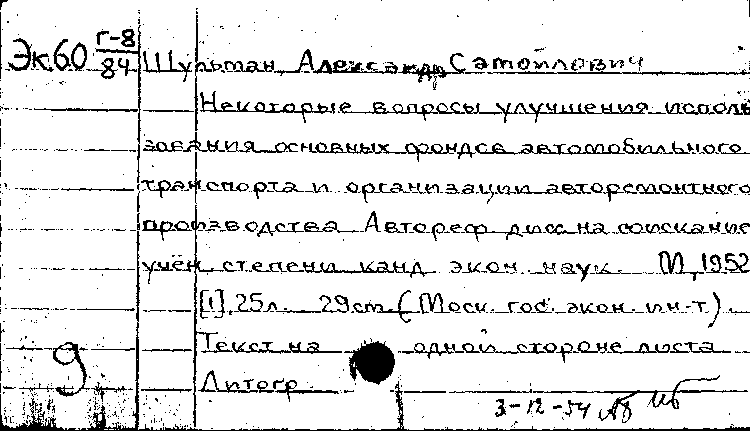 Эк.60 Г-8/84 Шульман, Александр Самойлович
Некоторые вопросы улучшения исполь
зования основных фондов автомобильного
транспорта и организации авторемонтного
производства Автореф дисс на соискание
учён степени канд экон наук. М, 1952
[1], 25л. 29см (Моск. гос. экон ин-т).
Текст на одной стороне листа
9 Литогр
3-12-54